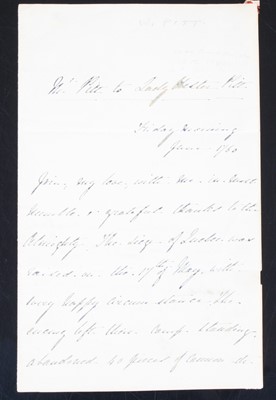 Mr. Pitt to Lady Hester Pitt.
Friday morning
June 1760
Join, my love, with me in most
humble & grateful thanks to the
Almighty. The siege of Quebec was
raised on the 17th of May, with
every happy circumstance. The
enemy left their camp standing,
abandoned 40 pieces of cannon &c